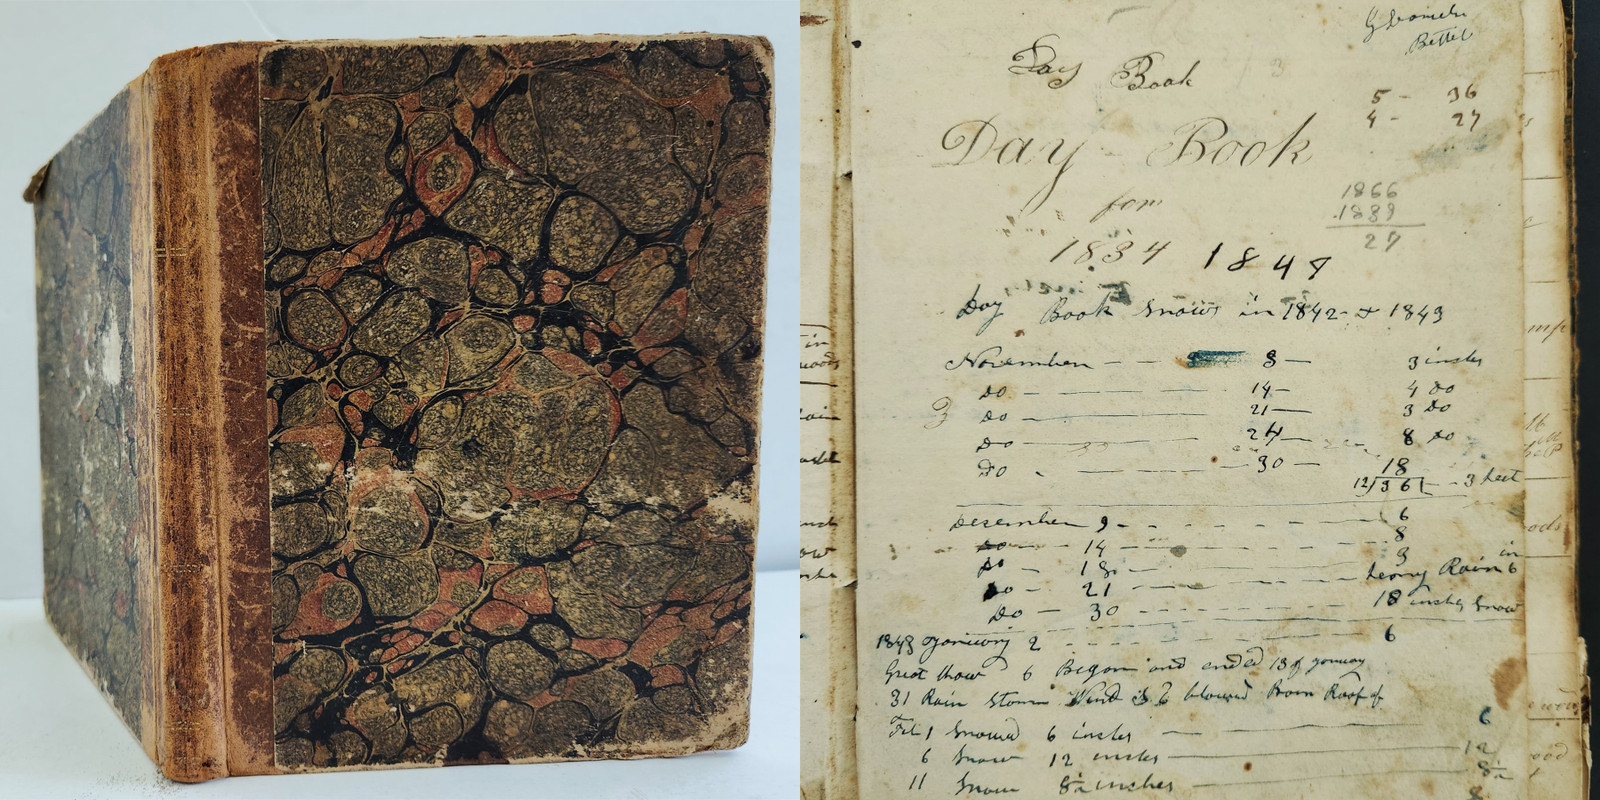 Day Book
5 - 36
4 - 27
Day - Book
for
1866
1889
27
1834 1847
Day Book Snows in 1842 & 1843
November - - 8 - 3 inches
do - 14 - 4 do
do - 21 - 3 do
do - 24 - 8 do
do - 30 - 18
12)36( - 3 feet
Desember 9 - 6
do - 14 - 8
do - 18 - 3
do - 21 - heavy Rain 6 in
do - 30 - 18 inches snow
1843 January 2 - 6
Great thaw 6 Began and ended 13 of January
31 Rain Storm Wind S E blowed Barn Roof of
Feb 1 Snowed 6 inches - 6
6 Snow 12 inches - 12
11 Snow 8½ inches - 8½